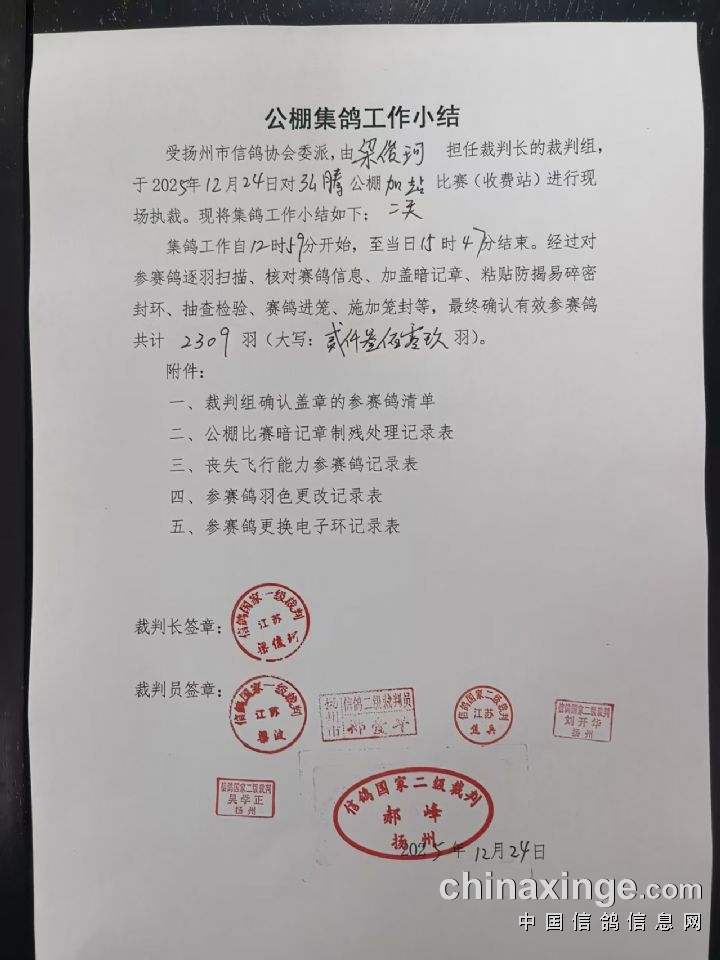 公棚集鸽工作小结
受扬州市信鸽协会委派，由梁俊珂 担任裁判长的裁判组，
于2025年12月24日对弘腾公棚加站比赛（收费站）进行现
二关
场执裁。现将集鸽工作小结如下：
集鸽工作自12时59分开始，至当日15时47分结束。经过对
参赛鸽逐羽扫描、核对赛鸽信息、加盖暗记章、粘贴防揭易碎密
封环、抽查检验、赛鸽进笼、施加笼封等，最终确认有效参赛鸽
共计 2309 羽（大写：贰仟叁佰零玖羽）。
附件：
一、裁判组确认盖章的参赛鸽清单
二、公棚比赛暗记章制残处理记录表
三、丧失飞行能力参赛鸽记录表
四、参赛鸽羽色更改记录表
五、参赛鸽更换电子环记录表
裁判长签章：
信鸽国家一级裁判
江苏
梁俊珂
裁判员签章：
信鸽国家一级裁判
江苏
扬州市
信鸽二级裁判员
信鸽国家二级裁判
江苏
信鸽国家二级裁判
刘开华
扬州
信鸽国家二级裁判
吴学正
扬州
信鸽国家二级裁判
郝峰
扬州
2025年12月24日
chinaxinge.com
中国信鸽信息网